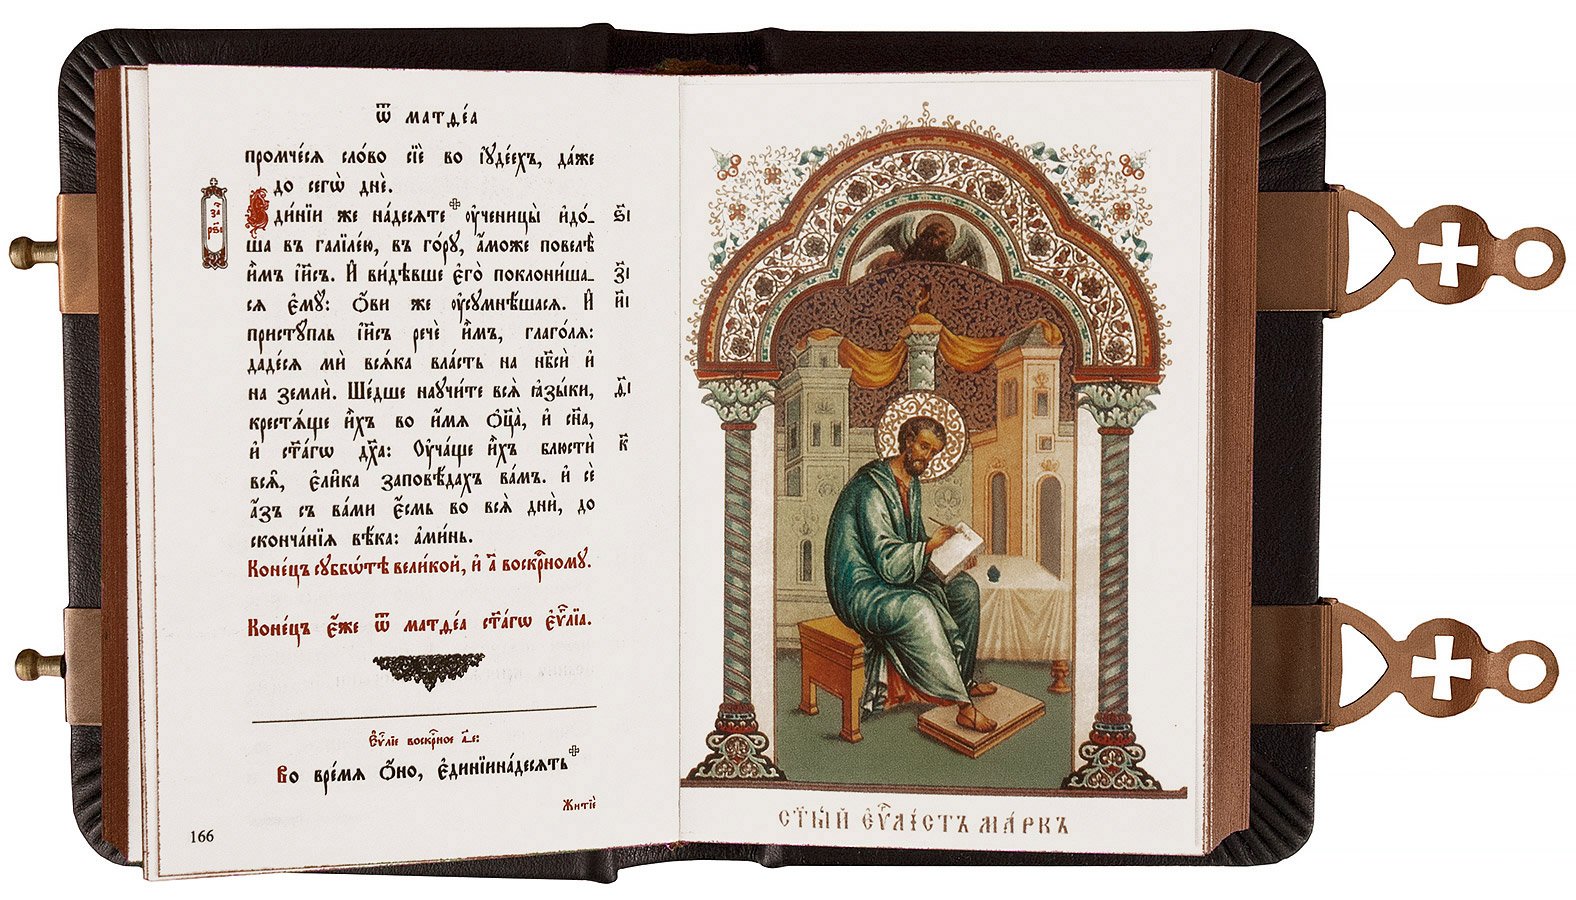 Ѿ матѳе́а
промче́сѧ сло́во сїѐ во і҆ꙋде́ехъ, да́же
до сегѡ̀днѐ.
Є҆ди́нїи же на́десѧте ᲂу҆ченицы̀ и҆до́-
ша въ галїле́ю, въ го́рꙋ, а҆́може повелѣ̀
и҆̀мъ і҆и҃съ. И҆ ви́дѣвше є҆го̀ поклони́ша-
сѧ є҆мꙋ̀: ѻ҆́ви же ᲂу҆сꙋмнѣ́шасѧ. И҆
пристꙋ́пль і҆и҃съ речѐ и҆̀мъ, глаго́лѧ:
даде́сѧ мѝ всѧ́ка вла́сть на нб҃сѝ и҆
на землѝ. Ше́дше наꙋчи́те всѧ̑ ꙗ҆зы́ки,
крестѧ́ще и҆̀хъ во и҆́мѧ ѻ҆ц҃а̀, и҆ сн҃а,
и҆ ст҃а́гѡ дх҃а: Оу҆ча́ще и҆̀хъ блюстѝ
всѧ̑, є҆ли̑ка заповѣ́дахъ ва́мъ. и҆ сѐ
а҆́зъ съ ва́ми є҆́смь во всѧ̑ дни̑, до
сконча́нїѧ вѣ́ка: а҆ми́нь.
Коне́цъ сꙋббѡ́тѣ вели́кой, и҆ а҃ воскр҇ному.
Коне́цъ є҆́же ѿ матѳе́а ст҃а́гѡ є҆ѵ҃лїа.
з҃і
и҃і
к҃
Є҆ѵ҃лїе воскр҇ное а҃-е:
Во вре́мѧ ѻ҆́но, є҆ди́нїинадесѧть
Житїѐ
166
СТ҃Ы́Й Є҆Ѵ҃ЛІ́СТЪ МА́РКЪ